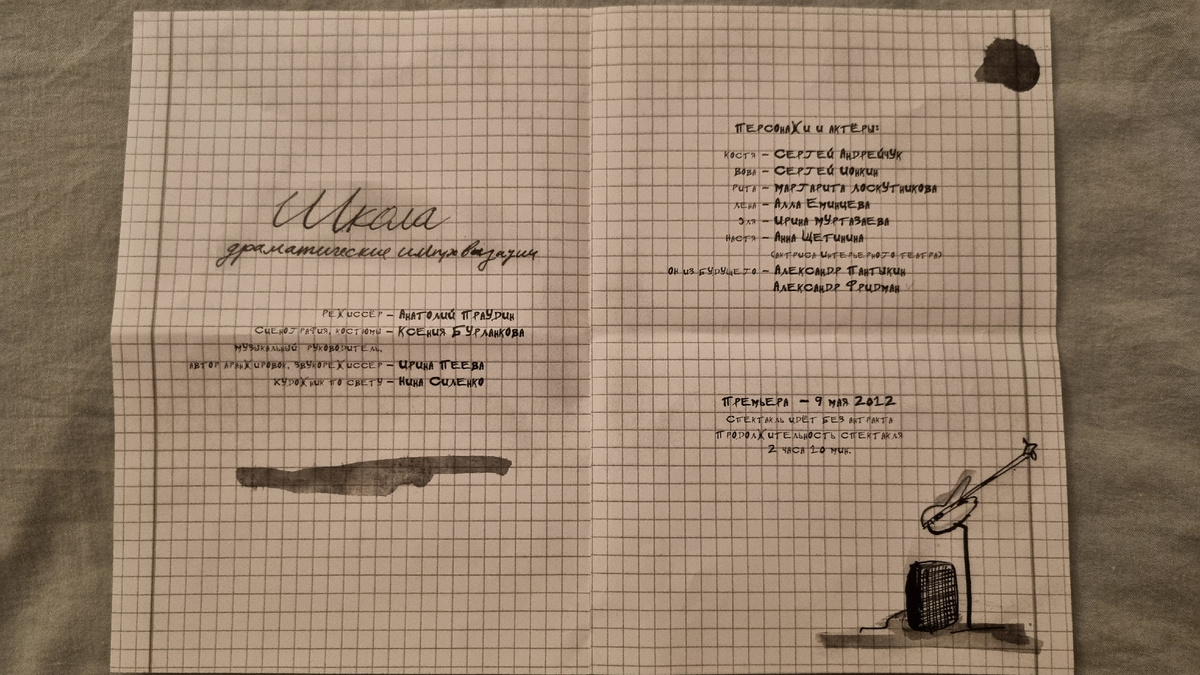 Школа
драматические импровизации
РЕЖИССЁР – АНАТОЛИЙ ПРАУДИН
СЦЕНОГРАФИЯ, КОСТЮМЫ – КСЕНИЯ БУРЛАНКОВА
МУЗЫКАЛЬНЫЙ РУКОВОДИТЕЛЬ,
АВТОР АРАНЖИРОВОК, ЗВУКОРЕЖИССЕР – ИРИНА ПЕЕВА
ХУДОЖНИК ПО СВЕТУ – НИНА СИЛЕНКО
ПЕРСОНАЖИ И АКТЁРЫ:
КОСТЯ – СЕРГЕЙ АНДРЕЙЧУК
ВОВА – СЕРГЕЙ ИОНКИН
РИТА – МАРГАРИТА ЛОСКУТНИКОВА
ЛЕНА – АЛЛА ЕМИНЦЕВА
ЭЛЯ – ИРИНА МУРТАЗАЕВА
НАСТЯ – АННА ЩЕТИНИНА
(АКТРИСА ИНТЕРЬЕРНОГО ТЕАТРА)
ОН ИЗ БУДУЩЕГО – АЛЕКСАНДР ПАНТЫКИН
АЛЕКСАНДР ФРИДМАН
ПРЕМЬЕРА – 9 МАЯ 2012
СПЕКТАКЛЬ ИДЁТ БЕЗ АНТРАКТА
ПРОДОЛЖИТЕЛЬНОСТЬ СПЕКТАКЛЯ
2 ЧАСА 20 МИН.